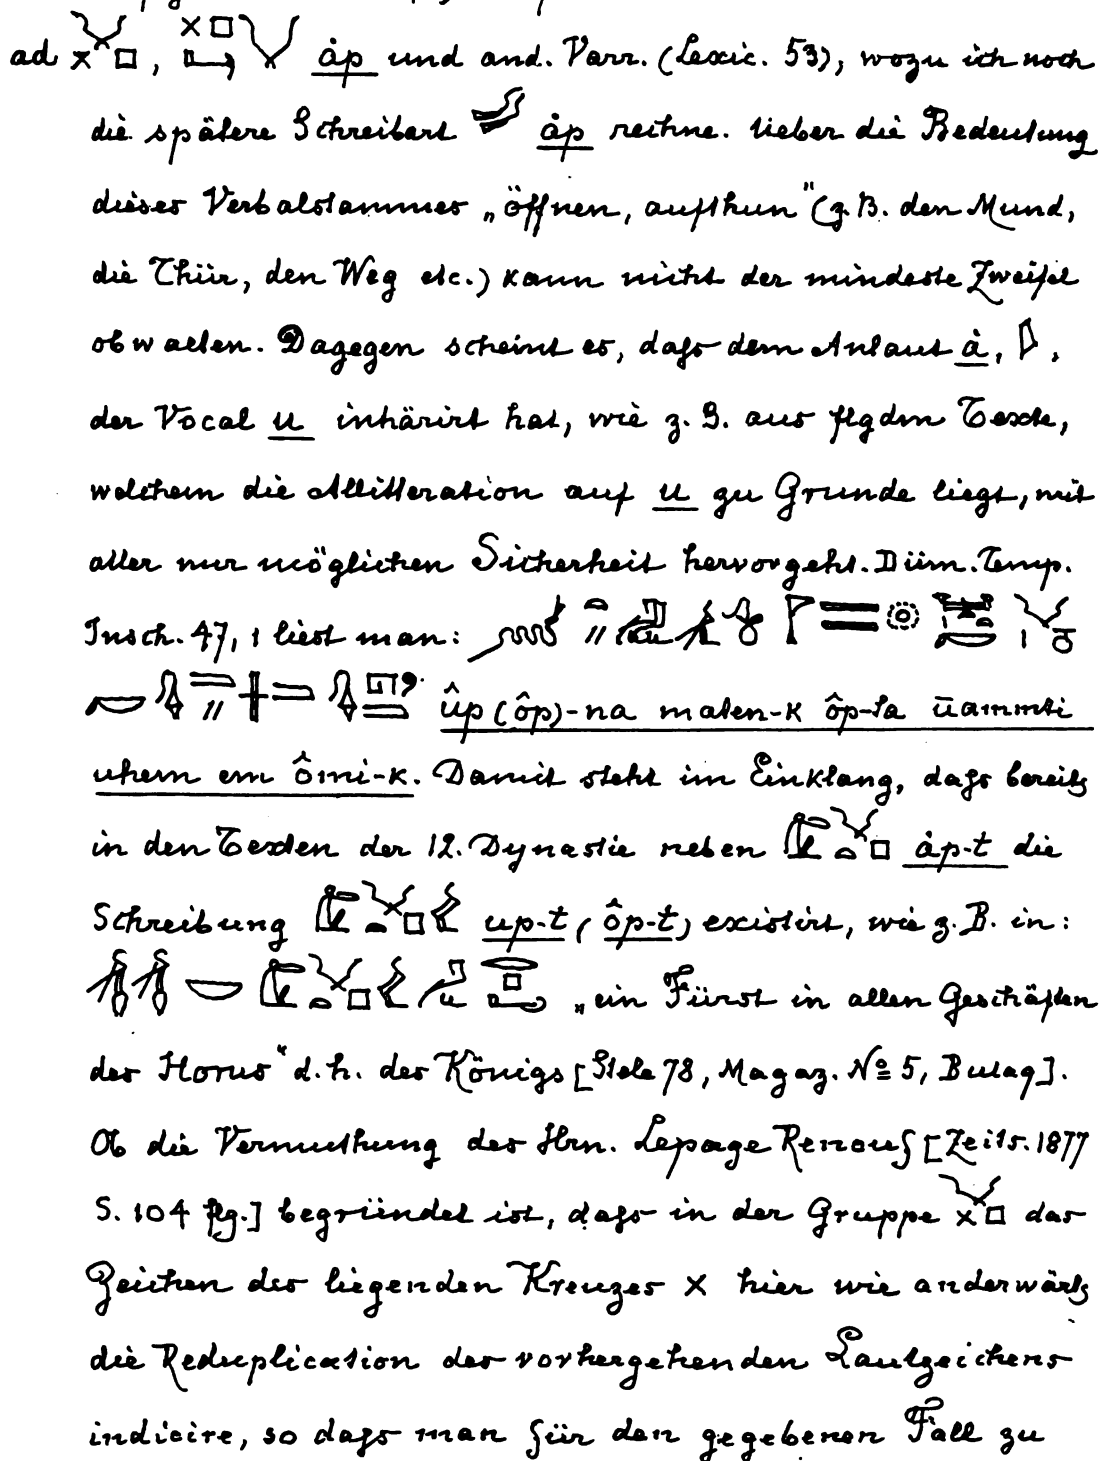 ad , åp und and. Varr. (Lexic. 53), wozu ich noch
die spätere Schreibart åp rechne. Ueber die Bedeutung
dieses Verbalstammes „öffnen, aufthun" (z.B. den Mund,
die Thür, den Weg etc.) kann nicht der mindeste Zweifel
obwalten. Dagegen scheint es, dafs dem Anlaut à, ,
der Vocal u inhärirt hat, wie z. B. aus flgdm Texte,
welchem die Allitteration auf u zu Grunde liegt, mit
aller nur möglichen Sicherheit hervorgeht. Düm. Temp.
Insch. 47, 1 liest man:
ûp (ôp)-na maten-k ôp-ta ūammti
uhem em ômi-k. Damit steht im Einklang, dafs bereits
in den Texten der 12. Dynastie neben åp-t die
Schreibung up-t (ôp-t) existirt, wie z.B. in:
„ein Fürst in allen Geschäften
des Horus" d.h. des Königs [Stele 78, Magaz. Nº 5, Bulaq].
Ob die Vermuthung des Hrn. Lepage Renouf [Zeits. 1877
S. 104 flg.] begründet ist, dafs in der Gruppe das
Zeichen des liegenden Kreuzes × hier wie anderwärts
die Reduplication des vorhergehenden Lautzeichens
indicire, so dafs man für den gegebenen Fall zu